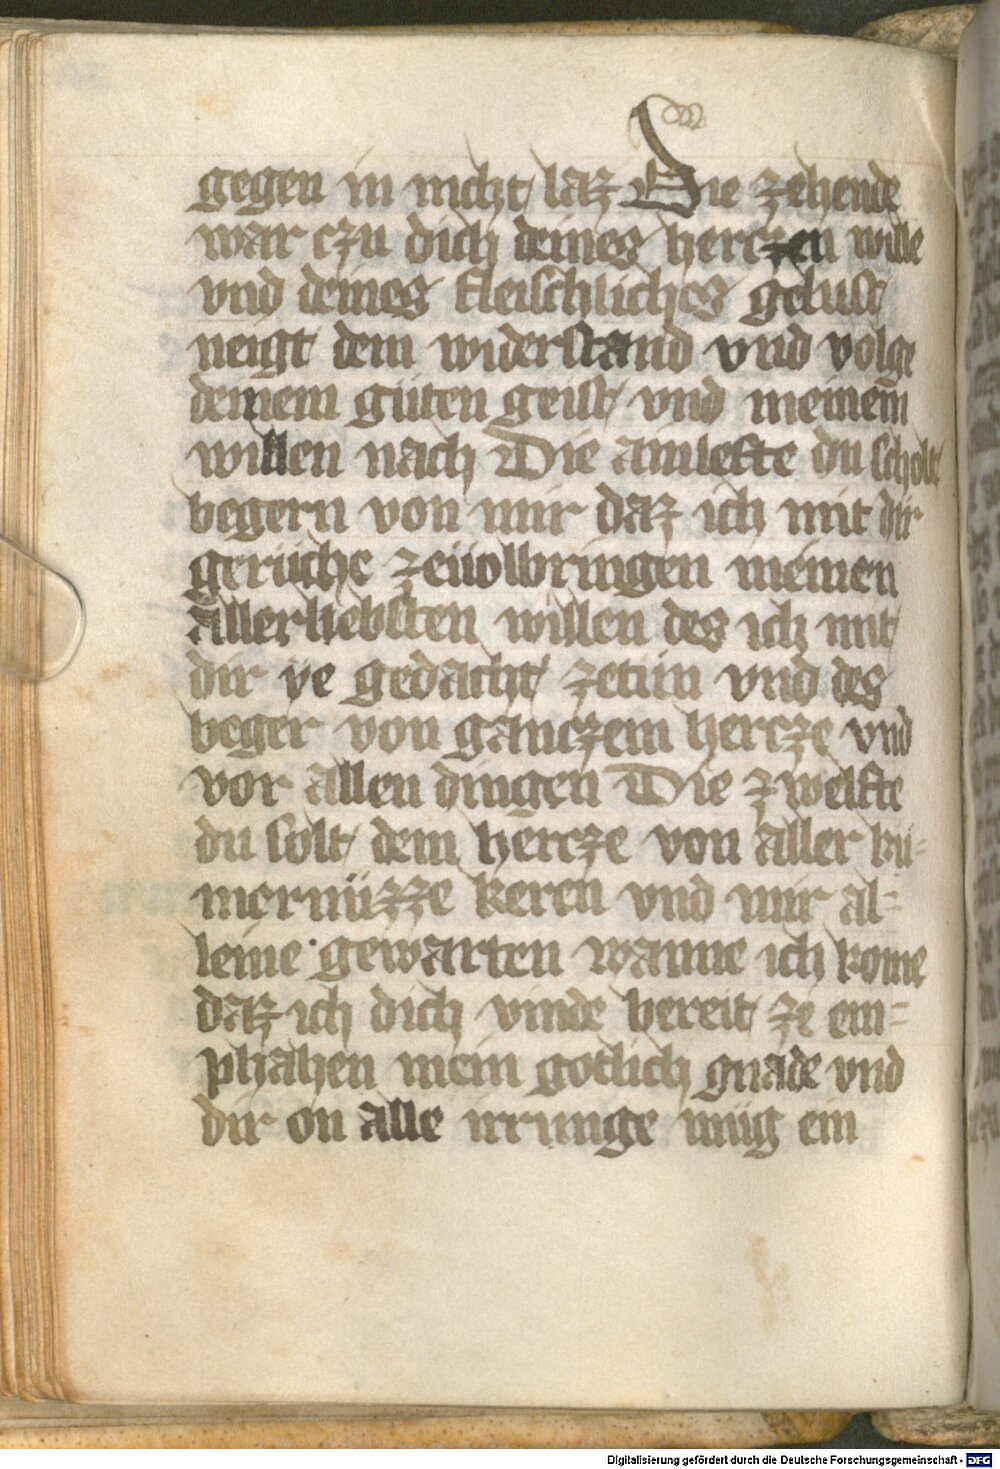 gegen in nicht laz Die zehende
war czu dich deines herczen wille
vnd deines fleischliches gelust
neigt dem widerstand vnd volge
deinem güten geist vnd meinem
willen nach Die ainlefte du scholt
begern von mir daz ich mit dir
gerüche zeuolbringen meinen
allerliebsten willen des ich mit
dir ye gedacht zetün vnd des
beger von ganczem hercze vnd
vor allen dingen Die zwelfte
du solt dem hercze von aller kü-
mernüzze keren vnd mir al-
leine gewarten wanne ich kome
daz ich dich vinde bereit ze em-
phahen mein gotlich gnade vnd
dir on alle irrunge müg ein
Digitalisierung gefördert durch die Deutsche Forschungsgemeinschaft - DFG